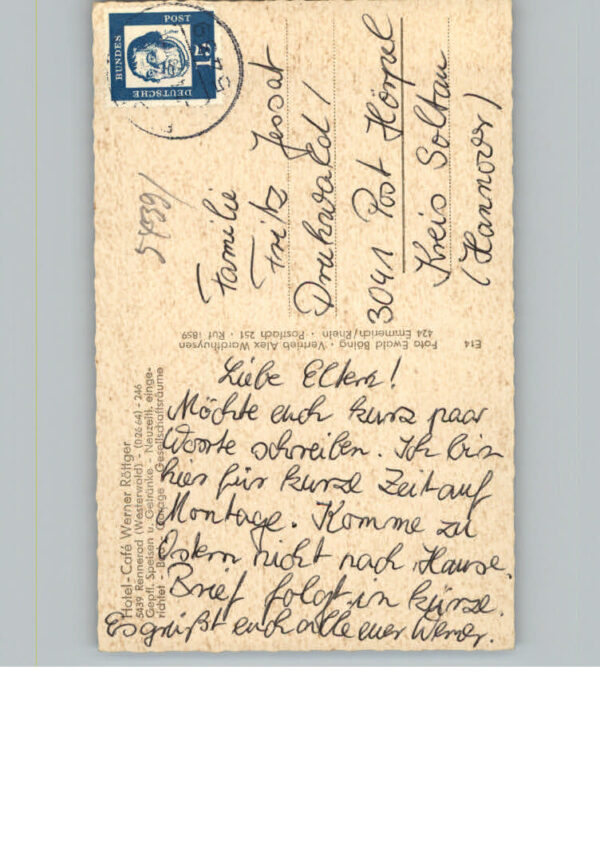 Hotel-Café Werner Röttger
5439 Rennerod (Westerwald) - (02664) - 246
Gepfl. Speisen u. Getränke - Neuzeitl. einge-
richtet - Garage - Gesellschaftsräume
Liebe Eltern!
Möchte euch kurz paar
Worte schreiben. Ich bin
hier für kurze Zeit auf
Montage. Komme zu
Ostern nicht nach Hause.
Brief folgt in kürze.
Es grüßt euch alle euer Werner.
E14
Foto Ewald Böing · Vertrieb Alex Wardthuysen
424 Emmerich/Rhein · Postfach 251 · Ruf 1859
DEUTSCHE
BUNDES
POST
15
5439/
Familie
Fritz Jessat
3041 Post Hörpel
Kreis Soltau
(Hannover)